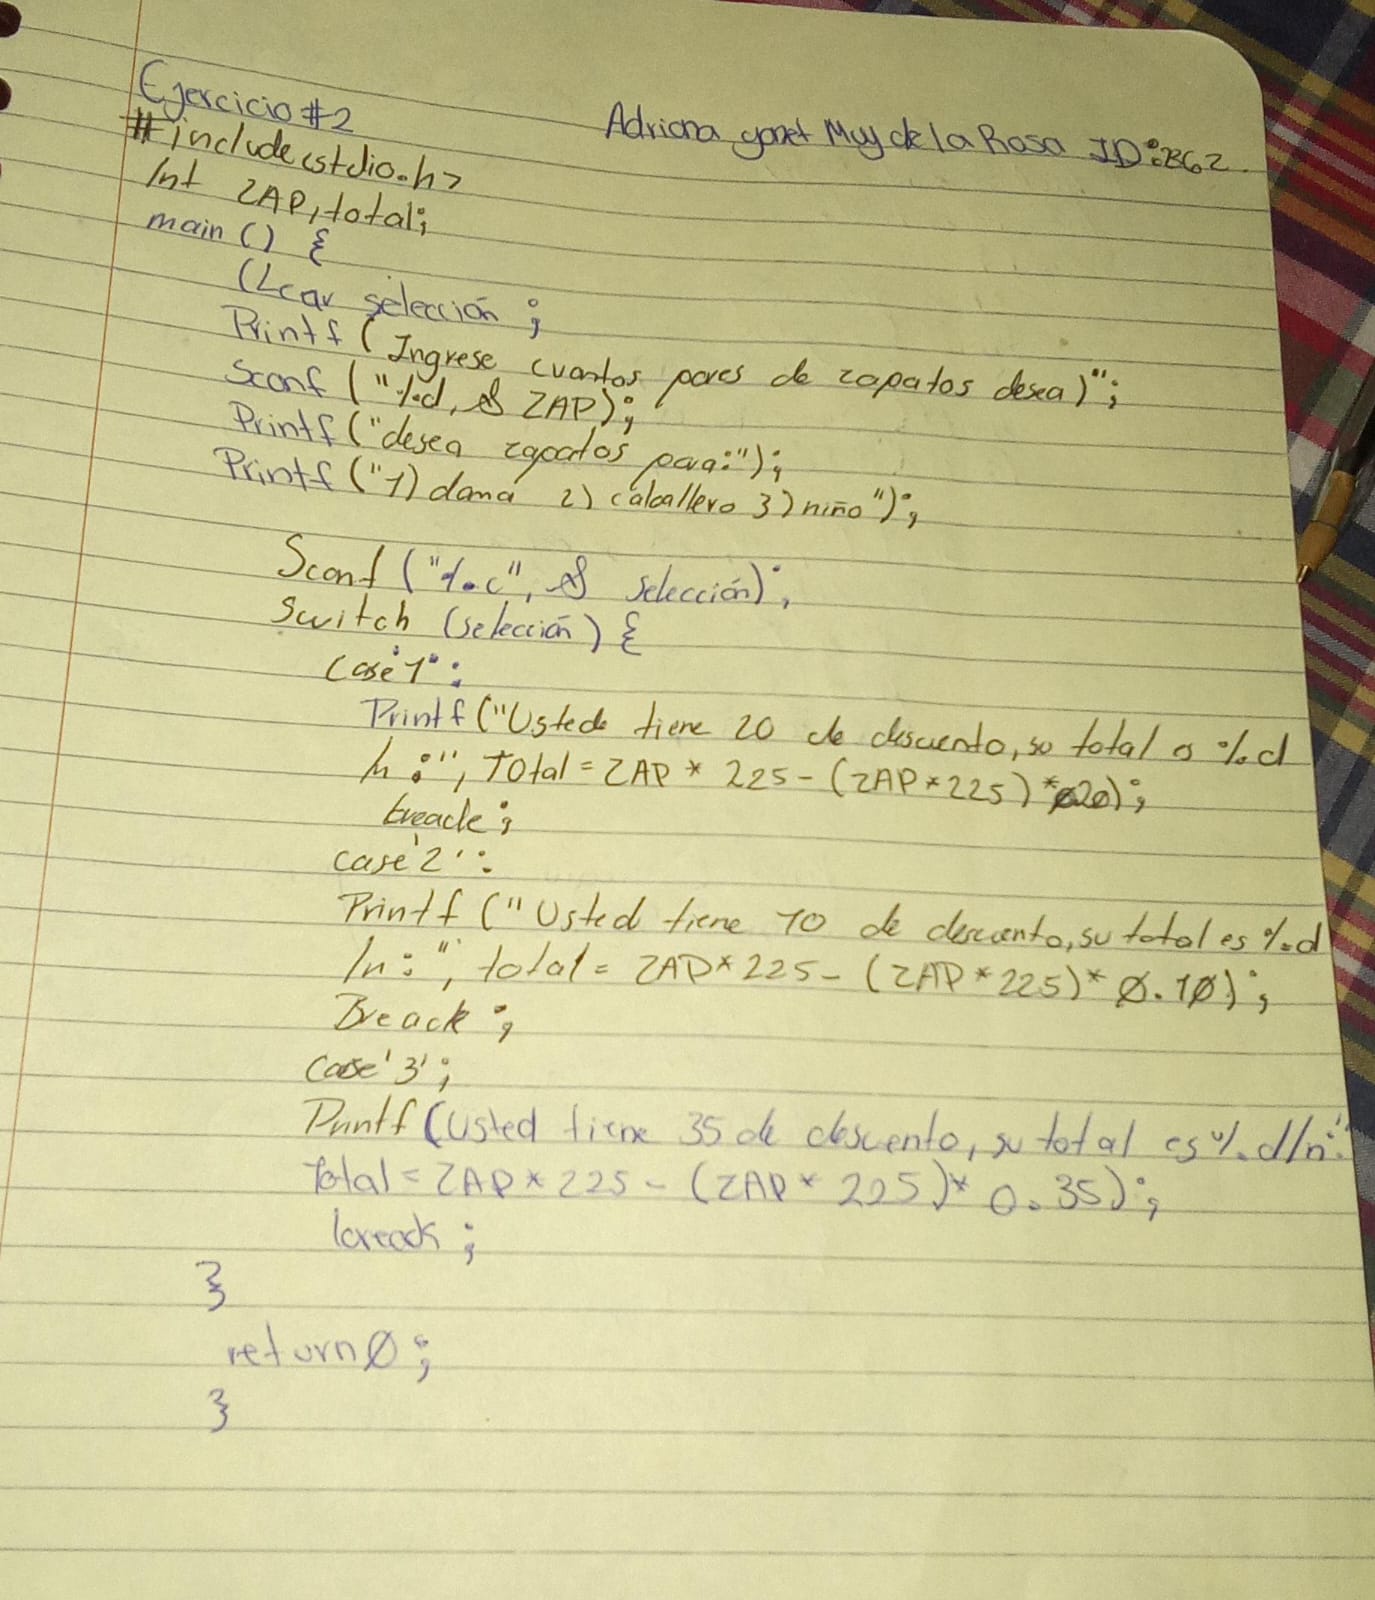 Ejercicio #2
Adriana yanet Muy de la Rosa ID: 862.
#include<stdio.h>
Int ZAP, total;
main () {
(Lear selección ;
Printf ( Ingrese cuantos pares de zapatos desea)";
Scanf ("%d, & ZAP);
Printf ("desea zapatos para:");
Printf ("1) dama 2) caballero 3) niño");
Scanf ("%c", & selección);
Switch (selección) {
Case '1' :
Printf ("Ustede tiene 20 de descuento, su total es %d
/n :", Total = ZAP * 225 - (ZAP * 225) * 020);
breack ;
case '2' :
Printf (" Usted tiene 10 de descuento, su total es %d
/n : ", total = ZAP * 225 - (ZAP * 225) * 0.10) ;
Breack ;
Case '3' ;
Printf (Usted tiene 35 de descuento, su total es %d/n:"
Total = ZAP * 225 - (ZAP * 225) * 0.35) ;
breack ;
}
return 0 ;
}